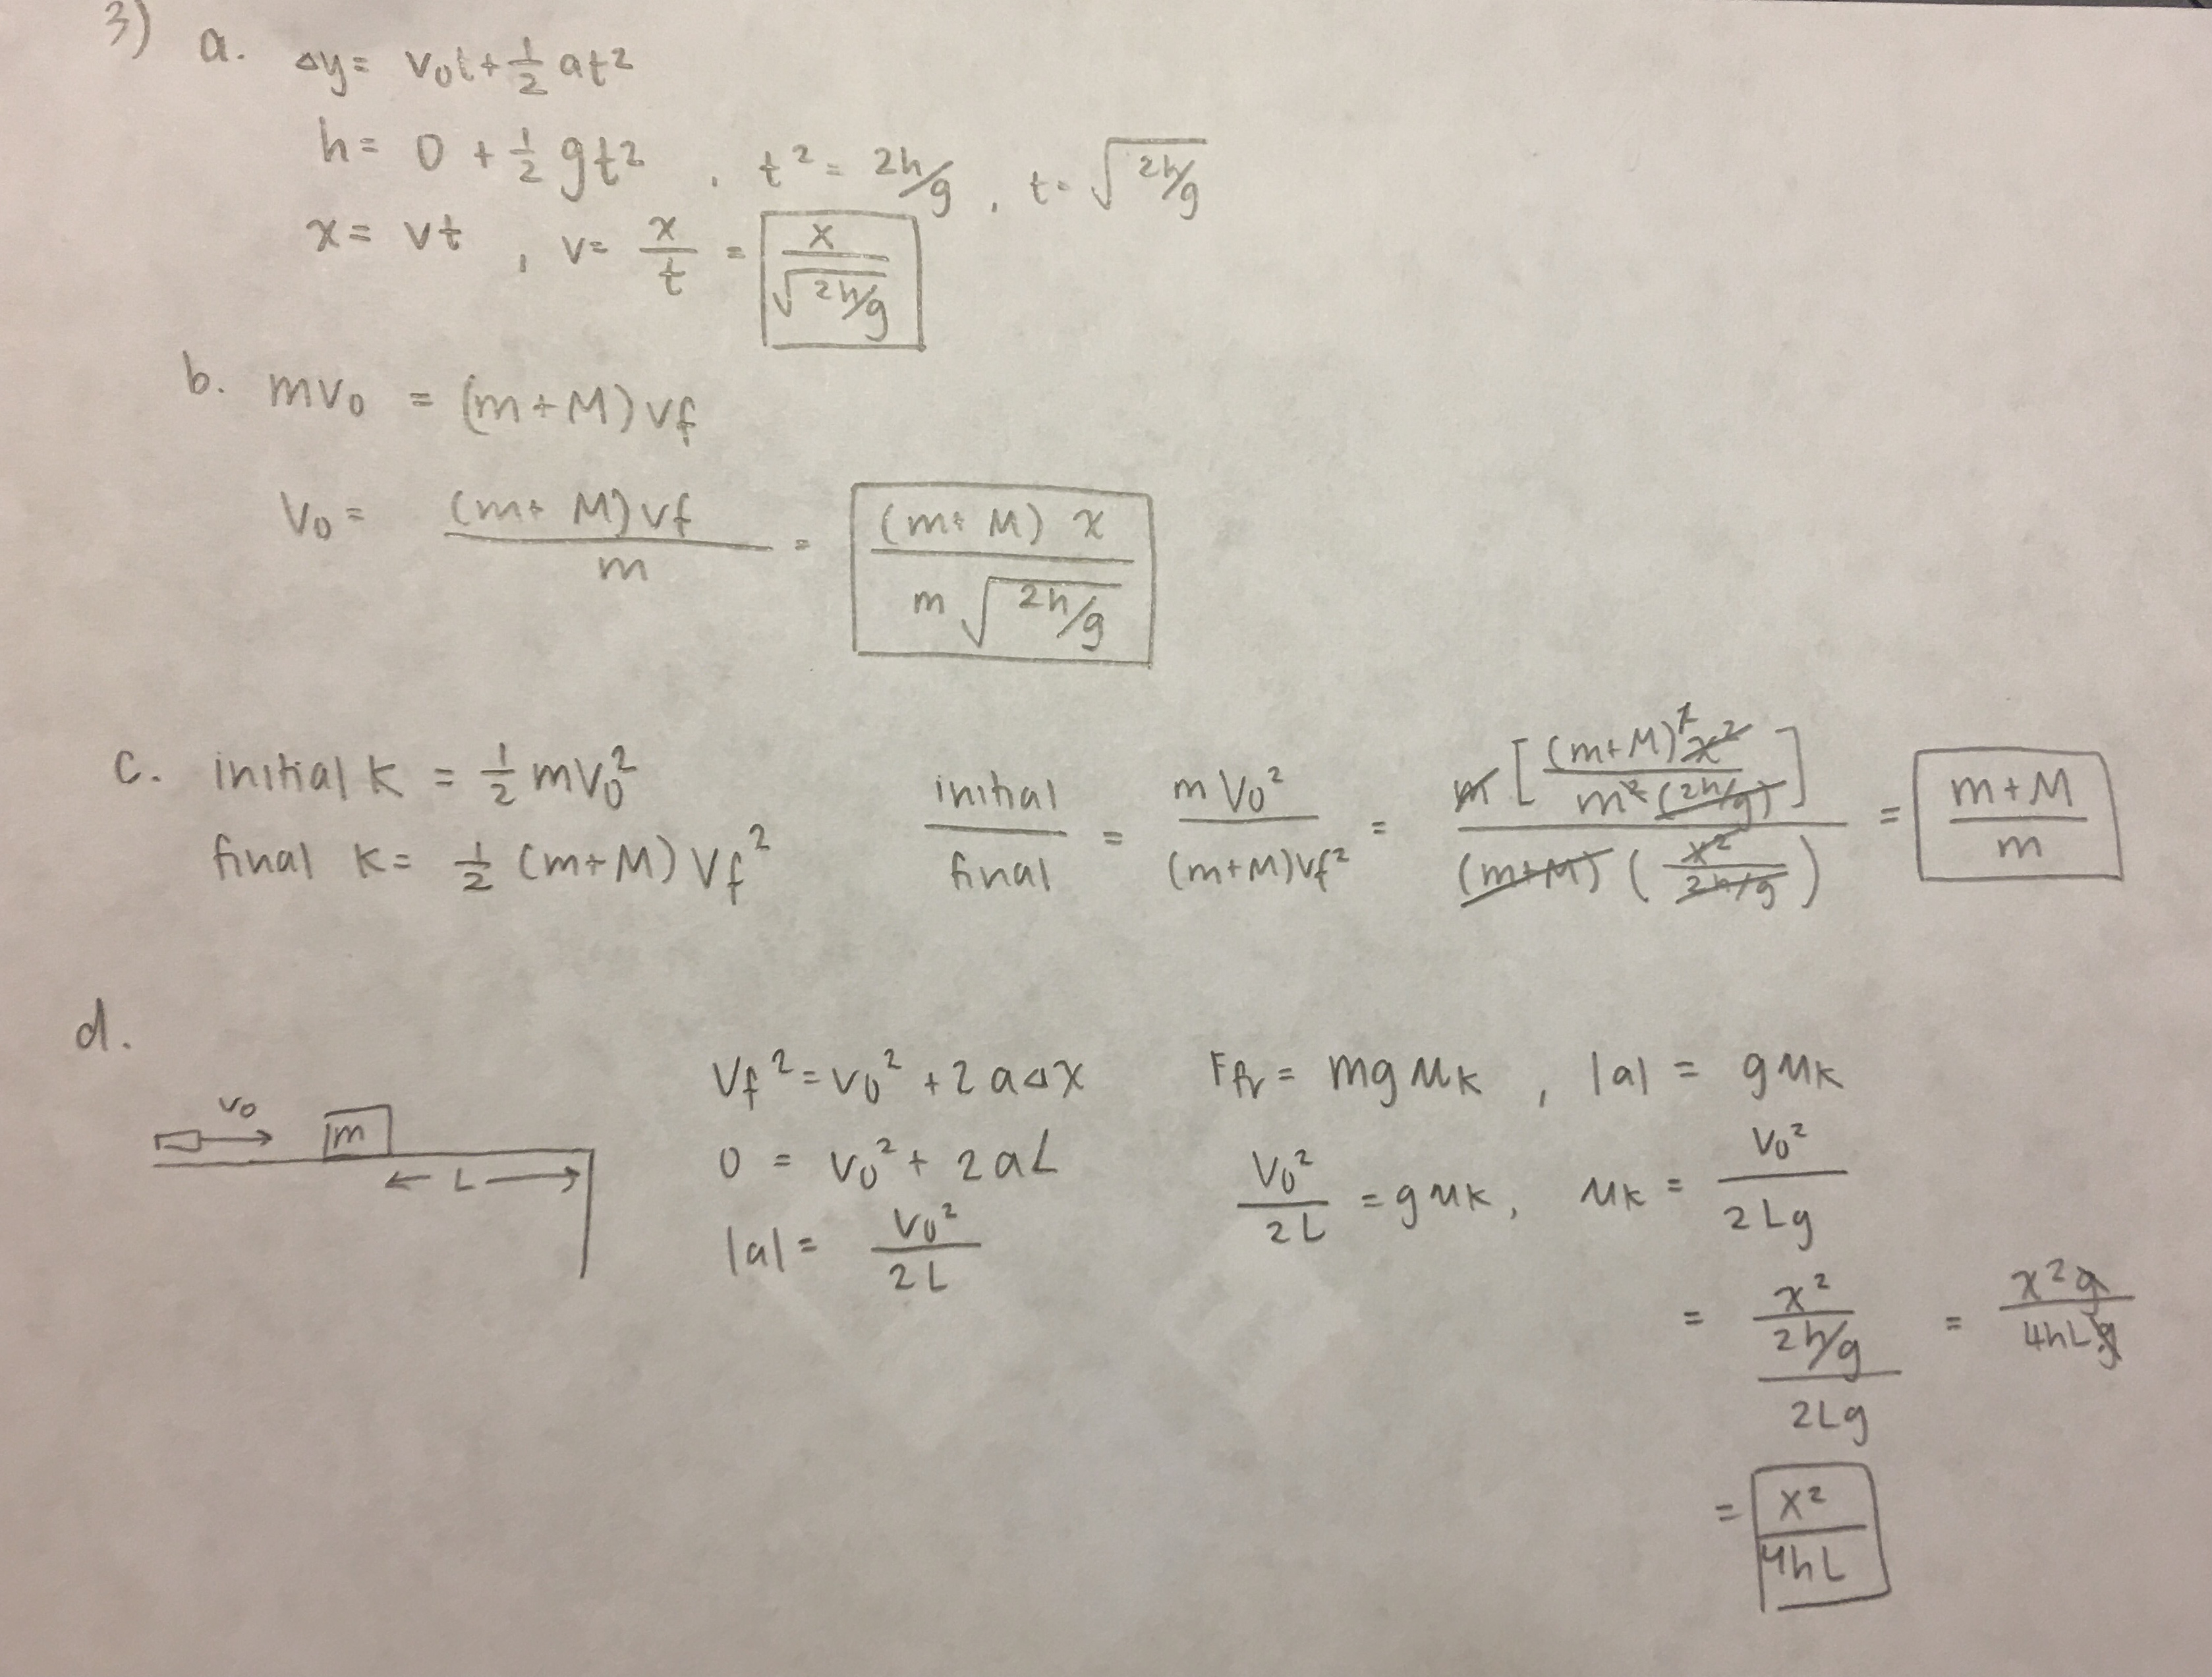 3) a. Δy = v₀t + 1/2 at²
h = 0 + 1/2 gt² , t² = 2h/g , t = √(2h/g)
x = vt , v = x/t = x/√(2h/g)
b. mv₀ = (m+M) vf
v₀ = (m+M) vf / m = (m+M) x / m√(2h/g)
c. initial K = 1/2 mv₀²
final K = 1/2 (m+M) Vf²
initial/final = mv₀²/(m+M)vf² = m[(m+M)²x²/m²(2h/g)] / (m+M)(x²/2h/g) = m+M/m
d.
v₀
m
L
Vf² = v₀² + 2aΔx
0 = v₀² + 2aL
|a| = v₀²/2L
Ffr = mgμk , |a| = gμk
v₀²/2L = gμk, μk = v₀²/2Lg
= x²/2h/g / 2Lg = x²g/4hLg
= x²/4hL